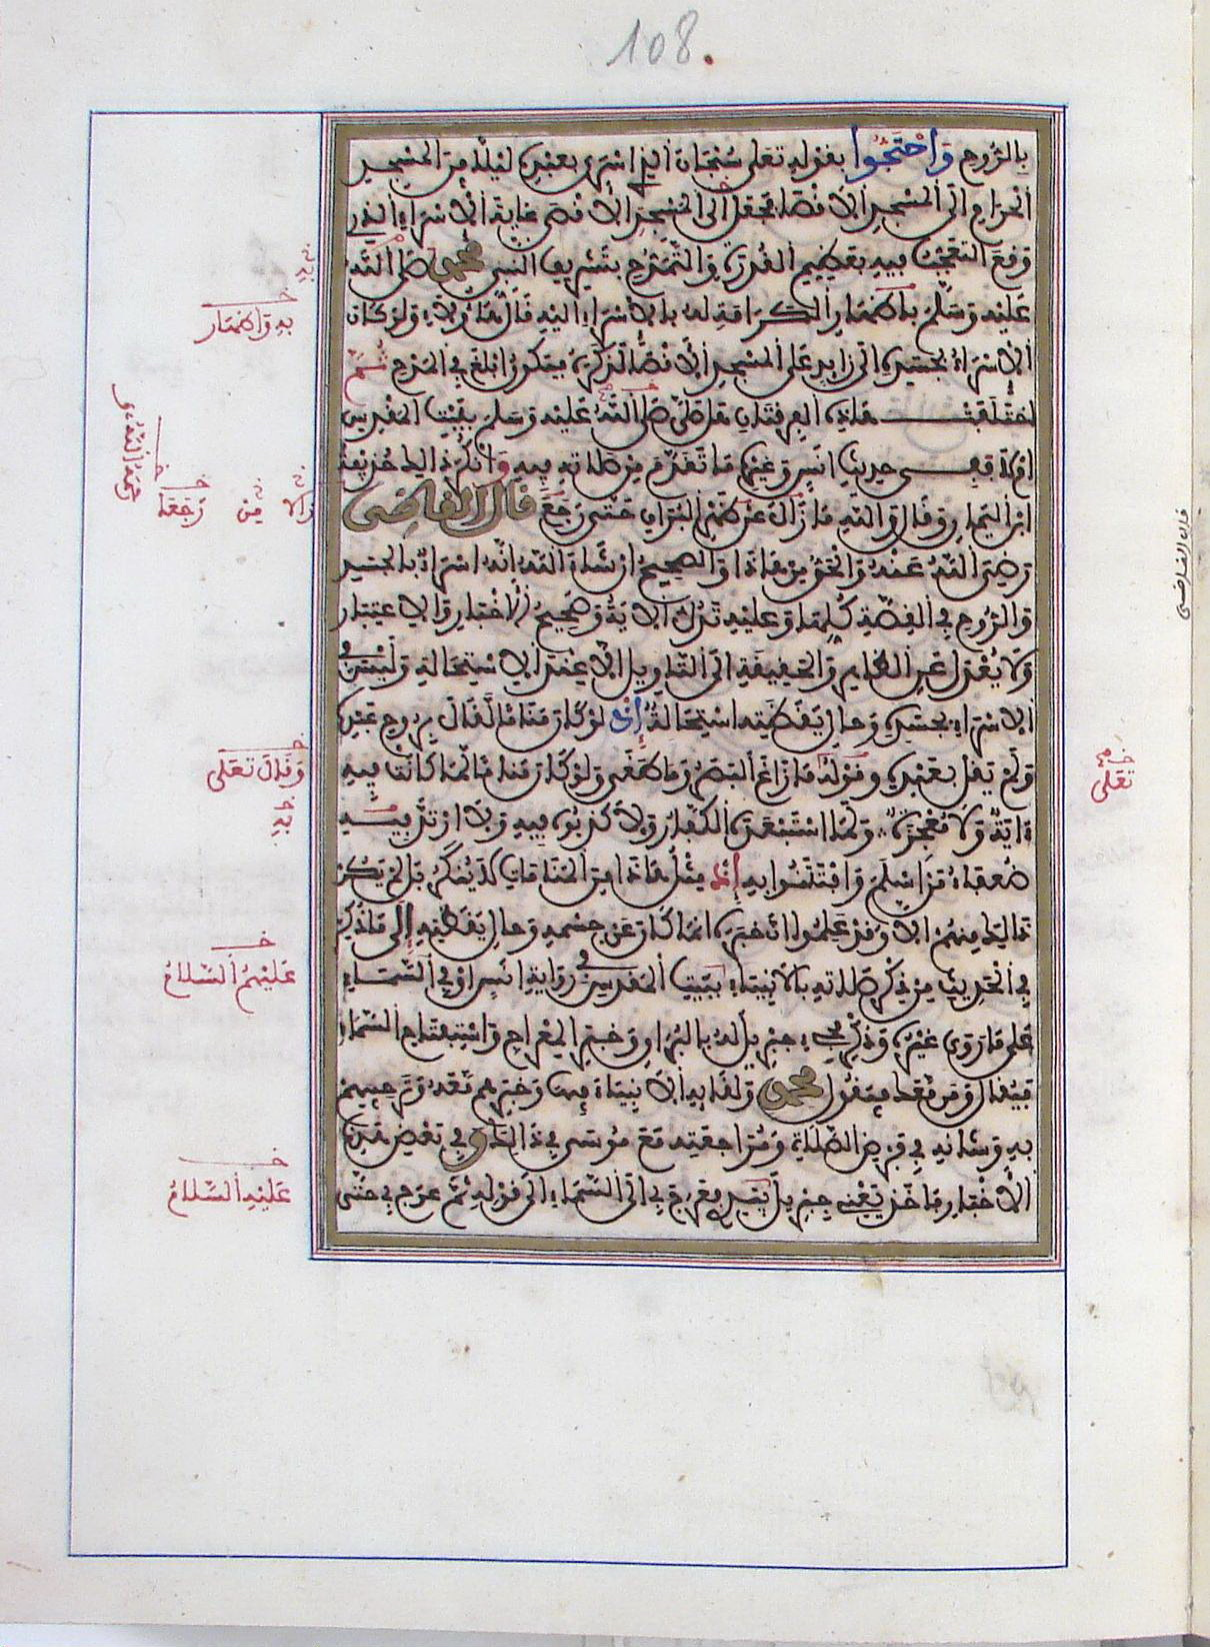 108.
بالروح واحتجوا بقوله تعلى سبحان الذي اسرى بعبده ليلا من المسجد
الحرام الى المسجد الاقصا فجعل الى المسجد الاقصى غاية الاسراء الذي
وقع التعجب فيه بعظيم القدرة والتمدح بتشريف النبي محمد صلى الله
عليه وسلم باظهار الكرامة له بالاسراء اليه قال هاؤلاء ولو كان
الاسراء بجسده الى زايد على المسجد الاقصا لذكره فيكون ابلغ في المدح ثم
اختلفت هاذه الفرقتان هل صلى صلى الله عليه وسلم ببيت المقدس
ام لا ففي حديث انس وغيره ما تقدم من صلاته فيه وانكر ذالك حذيفة
ابن اليمان وقال والله ما زال عن ظهر البراق حتى رجع قال القاضى
رضي الله عنه والحق من هاذا والصحيح ان شاء الله انه اسراء بالجسد
والروح في القصة كلها وعليه تدل الاية وصحيح الاخبار والاعتبار
ولا يعدل عن الظاهر والحقيقة الى التاويل الا عند الاستحالة وليس في
الاسراء بجسده وحال يقظته استحالة إذ لو كان مناما لقال بروح عبده
ولم يقل بعبده وقوله ما زاغ البصر وما طغى ولو كان مناما لما كانت فيه
ءاية ولا معجزة ولما استبعده الكفار ولا كذبوه فيه ولا ارتد به
ضعفاء من اسلم وافتتنوا به إذ مثل هاذا من المنامات لا ينكر بل لم يكن
ذالك منهم الا وقد علموا ان خبره انما كان عن جسمه وحال يقظته إلى ما ذكر
في الحديث من ذكر صلاته بالانبياء ببيت المقدس في رواية انس او في السماء
على ما روى غيره وذكر مجيء جبريل له بالبراق وخبر المعراج واستفتاح السماء
فيقال ومن معك فيقول محمد ولقايه الانبياء فيها وخبرهم معه وترحيبهم
به وشانه في فرض الصلاة ومراجعته مع موسى في ذالك وفي بعض هذه
الاخبار فاخذ يعني جبريل بيدي فعرج بي الى السماء الى قوله ثم عرج بي حتى
به واظهار
رحمه الله
من رجعة
وقال تعلى
به
عليهم السلام
عليه السلام
تعلى
قال القاضى